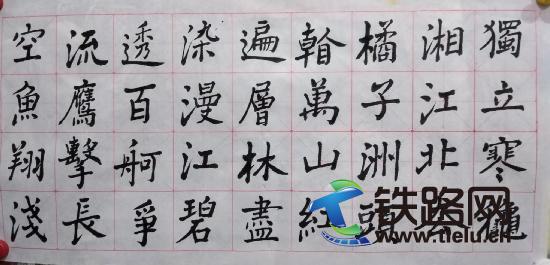 獨立寒龝
湘江北去
橘子洲頭
萬山紅
遍層林盡
染漫江碧
透百舸爭
流鷹擊長
空魚翔淺
铁路网
www.tielu.cn